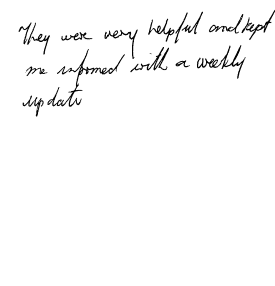 They were very helpful and kept
me informed with a weekly
update